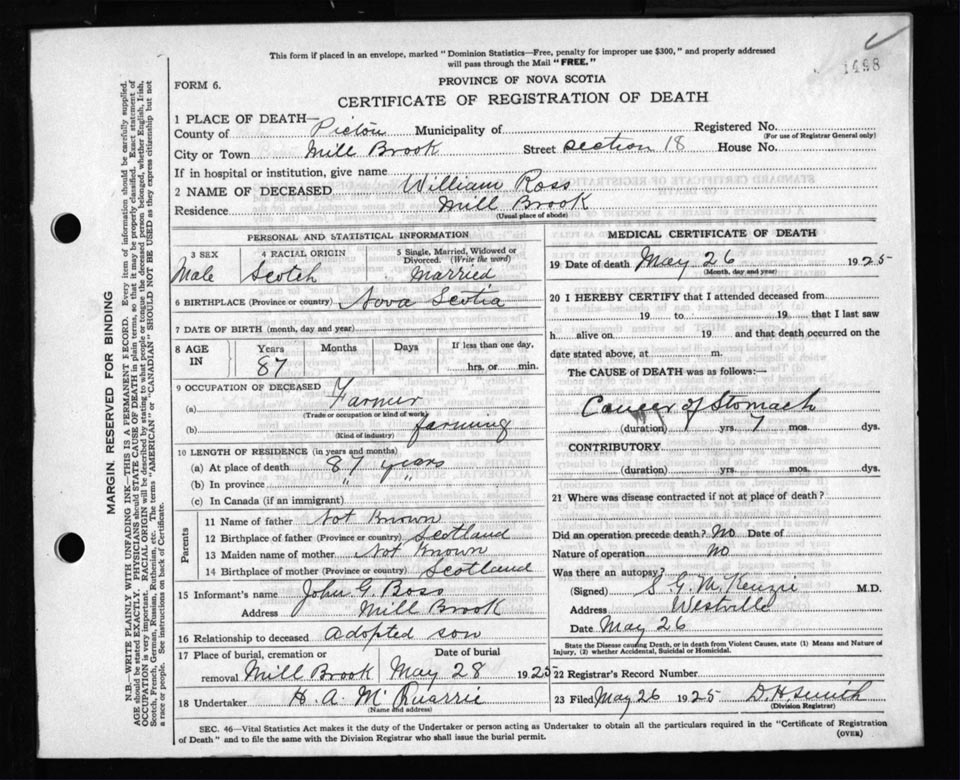 This form if placed in an envelope, marked "Dominion Statistics—Free, penalty for improper use $300," and properly addressed
will pass through the Mail "FREE."
1498
FORM 6.
PROVINCE OF NOVA SCOTIA
CERTIFICATE OF REGISTRATION OF DEATH
1 PLACE OF DEATH—
County of Pictou Municipality of Registered No.
(For use of Registrar General only)
City or Town Mill Brook Street Section 18 House No.
If in hospital or institution, give name
2 NAME OF DECEASED William Ross
Residence Mill Brook
(Usual place of abode)
PERSONAL AND STATISTICAL INFORMATION
3 SEX 4 RACIAL ORIGIN 5 Single, Married, Widowed or
Divorced. (Write the word)
Male Scotch Married
6 BIRTHPLACE (Province or country) Nova Scotia
7 DATE OF BIRTH (month, day and year)
8 AGE IN Years Months Days If less than one day,
87 hrs. or min.
9 OCCUPATION OF DECEASED
(a) Farmer
(Trade or occupation or kind of work)
(b) farming
(Kind of industry)
10 LENGTH OF RESIDENCE (in years and months)
(a) At place of death 87 years
(b) In province " "
(c) In Canada (if an immigrant)
Parents
11 Name of father Not Known
12 Birthplace of father (Province or country) Scotland
13 Maiden name of mother Not Known
14 Birthplace of mother (Province or country) Scotland
15 Informant's name John G. Ross
Address Mill Brook
16 Relationship to deceased adopted son
17 Place of burial, cremation or Date of burial
removal Mill Brook May 28 1925
18 Undertaker H A McQuarrie
(Name and address)
MEDICAL CERTIFICATE OF DEATH
19 Date of death May 26 1925
(Month, day and year)
20 I HEREBY CERTIFY that I attended deceased from
19 to 19 that I last saw
h alive on 19 and that death occurred on the
date stated above, at m.
The CAUSE of DEATH was as follows:—
Cancer of Stomach
(duration) yrs. 7 mos. dys.
CONTRIBUTORY
(duration) yrs. mos. dys.
21 Where was disease contracted if not at place of death?
Did an operation precede death? No Date of
Nature of operation No
Was there an autopsy?
(Signed) S. G. McKenzie M.D.
Address Westville
Date May 26
State the Disease causing Death, or in death from Violent Causes, state (1) Means and Nature of
Injury, (2) whether Accidental, Suicidal or Homicidal.
22 Registrar's Record Number
23 Filed May 26 1925 D. H. Smith
(Division Registrar)
SEC. 46—Vital Statistics Act makes it the duty of the Undertaker or person acting as Undertaker to obtain all the particulars required in the "Certificate of Registration
of Death" and to file the same with the Division Registrar who shall issue the burial permit.
(OVER)
MARGIN RESERVED FOR BINDING
N.B.—WRITE PLAINLY WITH UNFADING INK—THIS IS A PERMANENT RECORD. Every item of information should be carefully supplied.
AGE should be stated EXACTLY. PHYSICIANS should STATE CAUSE OF DEATH in plain terms, so that it may be properly classified. Exact statement of
OCCUPATION is very important. RACIAL ORIGIN will be described by stating to what people or tongue the deceased person belonged, whether English, Irish,
Scotch, French, German, Russian, Ruthenian, etc. The terms "AMERICAN" or "CANADIAN" SHOULD NOT BE USED as they express citizenship but not
a race or people. See instructions on back of Certificate.